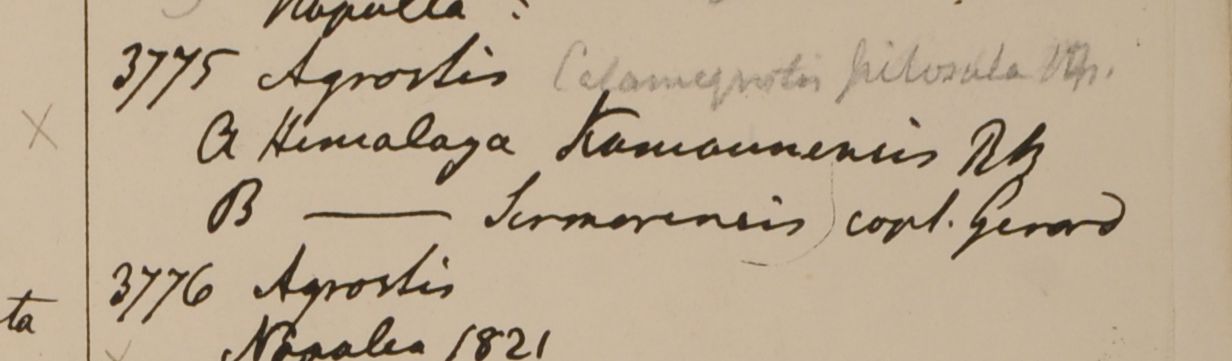 Napalia
3775 Agrostis Calamagrostis pilosula
a Himalaya Kamaunensis RB
B — Sirmorensis capt. Gerard
3776 Agrostis
ta
Napalia 1821